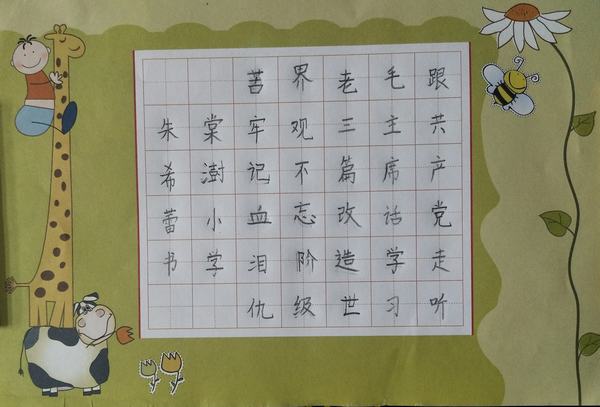 跟共产党走听
毛主席话学习
老三篇改造世
界观不忘阶级
苦牢记血泪仇
棠澍小学
朱希蕾书